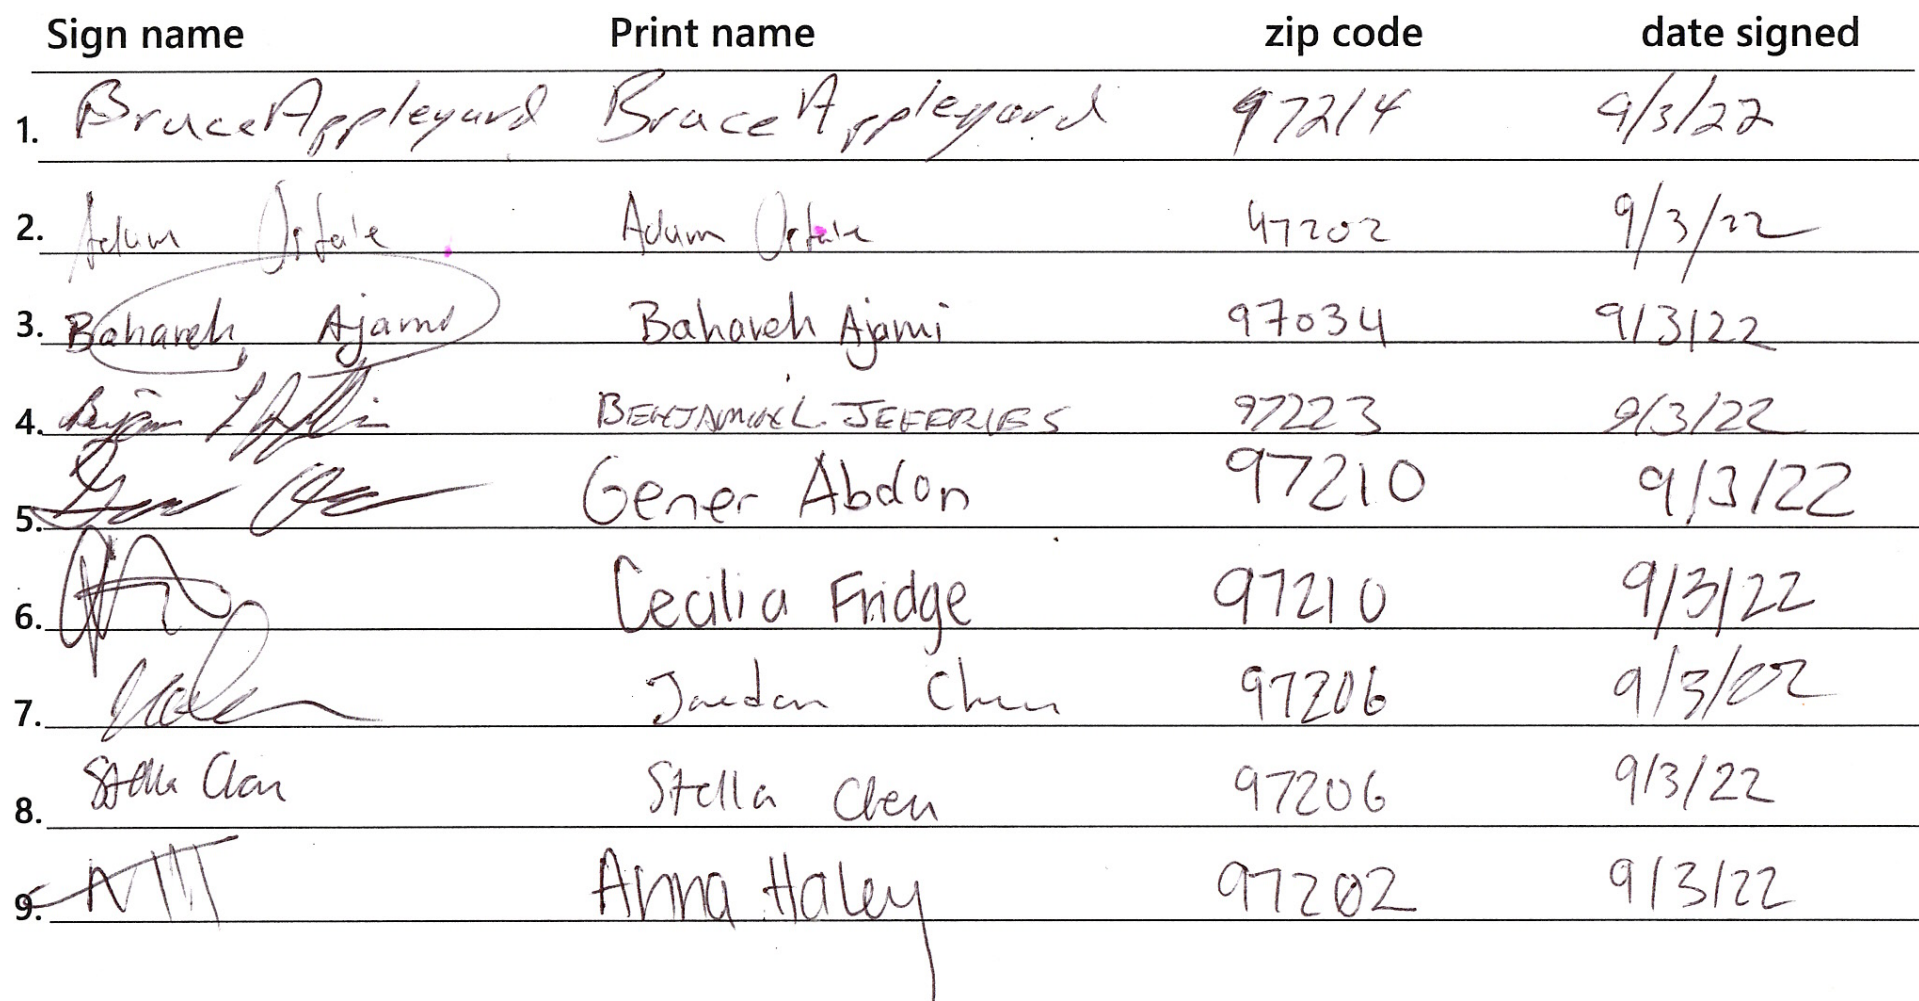 Sign name Print name zip code date signed
1. Bruce Appleyard Bruce Appleyard 97214 9/3/22
2. Adam Adam 97202 9/3/22
3. Bahareh Ajami Bahareh Ajami 97034 9/3/22
4. BENJAMIN L. JEFFERIES 97223 9/3/22
5. Gener Abdon 97210 9/3/22
6. Cecilia Fridge 97210 9/3/22
7. Jaedon Chen 97206 9/3/22
8. Stella Chen Stella Chen 97206 9/3/22
9. Anna Haley 97202 9/3/22